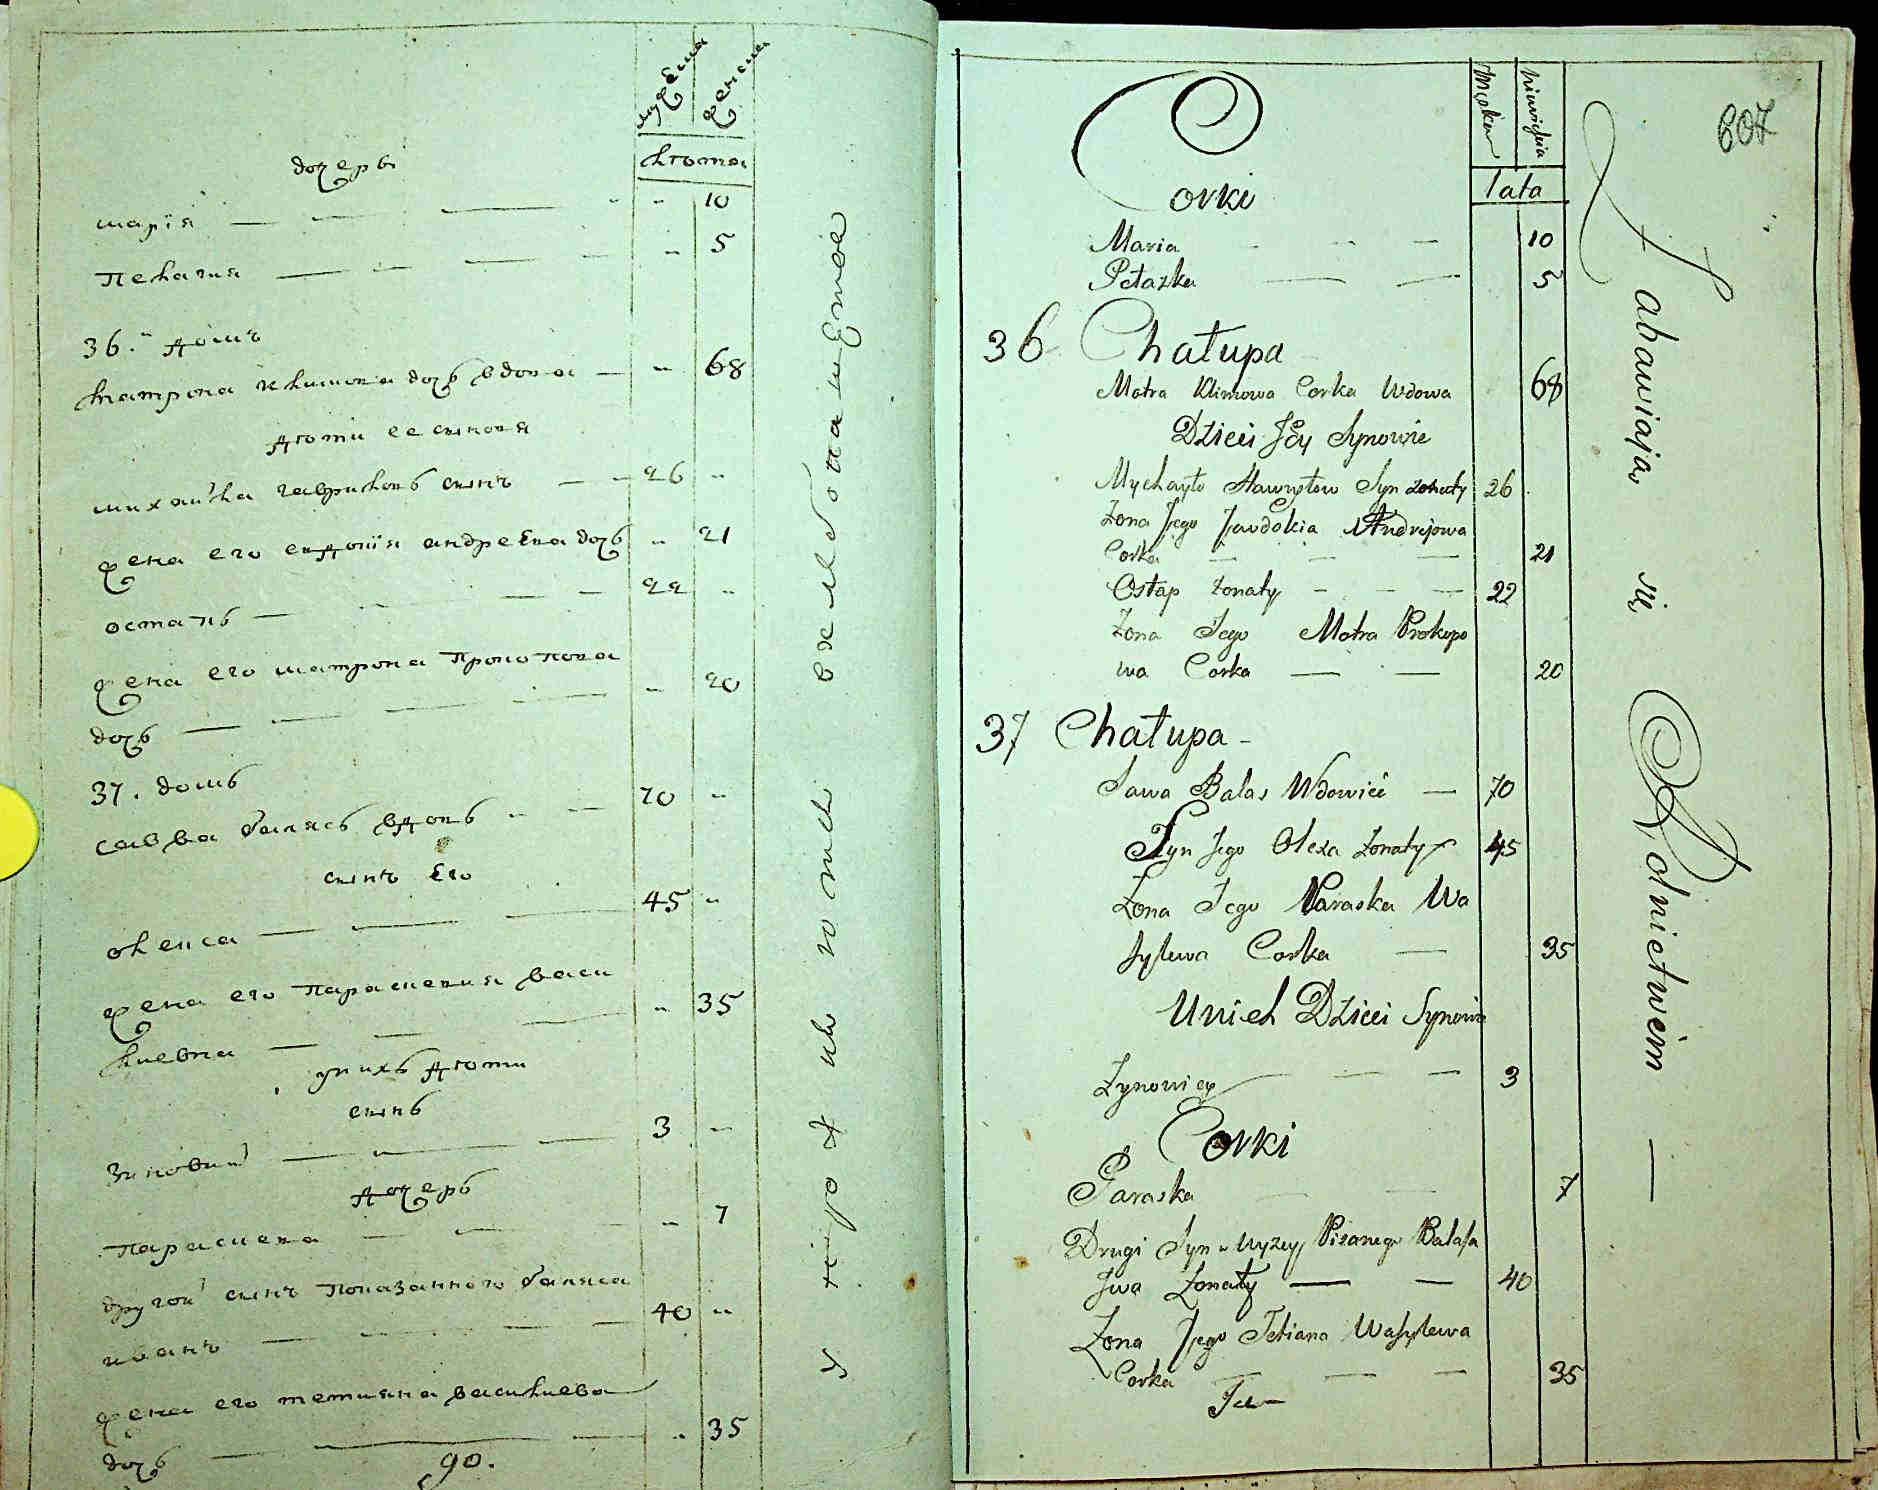 мужеска
женска
лѣта
дочерѣ
марія — — — " 10
Пелагія — — — " 5
36." домъ
матрона климова дочь вдова — " 68
дѣти ее сыновя
михайла гаврыловъ сынъ — 26 "
жена его евдокія андреева дочь " 21
остапъ — — — 22 "
жена его матрона Прокопова
дочь — — — " 20
37. домъ
савва балясъ вдовъ — 70 "
сынъ его
олекса — — — 45 "
жена его Параскевия васи
лиевна — — — " 35
у нихъ дѣти
сынъ
Зиновий — — — 3 "
дочерь
Параскева — — " 7
другой сынъ Показанного баляса
иванъ — — — 40 "
жена его тетияна василиева
дочь — — — " 35
90.
Męska
Niewieścia
lata
607
Corki
Maria — — — 10
Petazka — — 5
36 Chałupa
Motra Klimowa Corka Wdowa 68
Dzieci Jey Synowie
Mychayło Hawryłow Syn zonaty 26
Zona Jego Jewdokia Andrejowa
Corka — — — 21
Ostap zonaty — — — 22
Zona Jego Motra Prokopo
wa Corka — — 20
37 Chałupa -
Sawa Balas Wdowiec — 70
Syn Jego Olexa zonaty 45
Zona Jego Paraska Wa
sylewa Corka — 35
Unich Dzieci Synowie
Zynowiey — — — 3
Corki
Paraska — — 7
Drugi Syn wyzey Pisanego Balasa
Iwa Zonaty — — 40
Zona Jego Tetiana Wasylewa
Corka — — 35
Zabawiają się Rolnictwem —